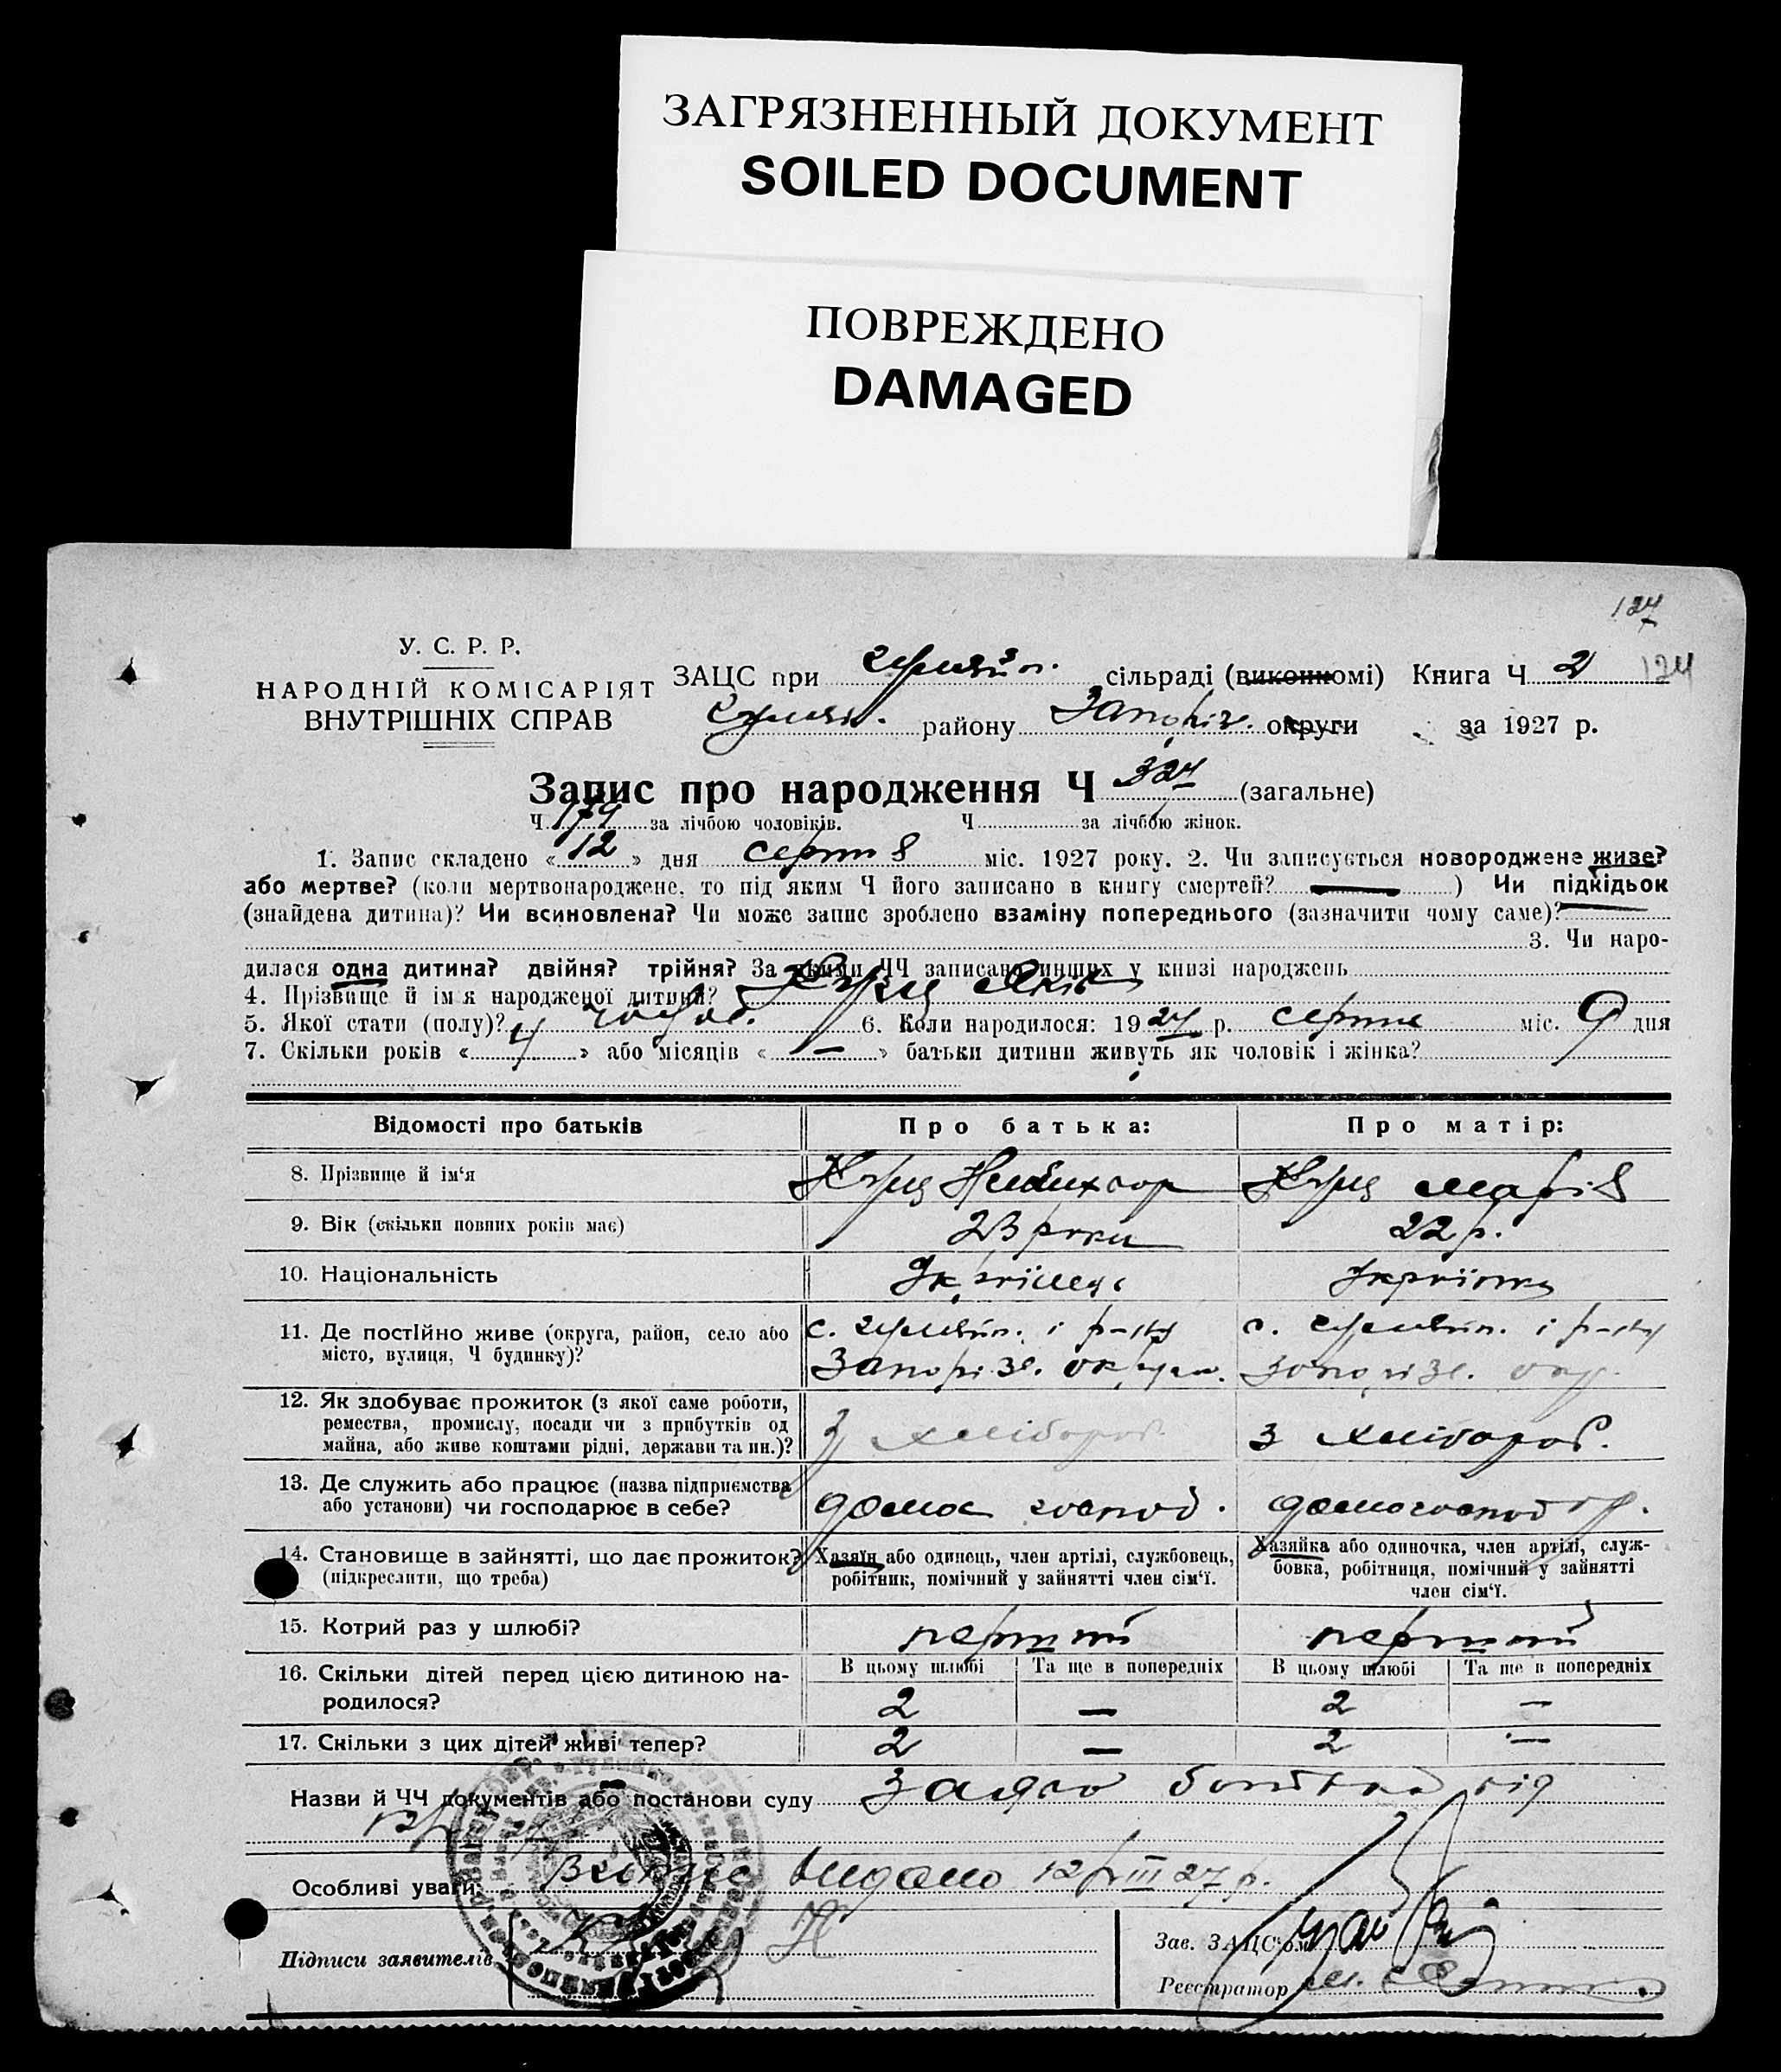 ЗАГРЯЗНЕННЫЙ ДОКУМЕНТ
SOILED DOCUMENT
ПОВРЕЖДЕНО
DAMAGED
124
У. С. Р. Р.
НАРОДНІЙ КОМІСАРІЯТ
ВНУТРІШНІХ СПРАВ
ЗАЦС при сільраді (виконкомі) Книга Ч 2 124
району Запоріз. округи за 1927 р.
Запис про народження Ч 324 (загальне)
Ч 179 за лічбою чоловіків. Ч за лічбою жінок.
1. Запис складено « 12 » дня серпня міс. 1927 року. 2. Чи записується новороджене живе?
або мертве? (коли мертвонароджене, то під яким Ч його записано в книгу смертей? — ) Чи підкідьок
(знайдена дитина)? Чи всиновлена? Чи може запис зроблено взаміну попереднього (зазначити чому саме)? —
3. Чи наро-
дилася одна дитина? двійня? трійня? За якими ЧЧ записано инших у книзі народжень
4. Прізвище й ім'я народженої дитини? Куць Яків
5. Якої стати (полу)? чолов. 6. Коли народилося: 1927 р. серпня міс. 9 дня
7. Скільки років « 4 » або місяців « — » батьки дитини живуть як чоловік і жінка?
Відомості про батьків Про батька: Про матір:
8. Прізвище й ім'я Куць Никихвор Куць Марія
9. Вік (скільки повних років має) 23 роки 22 р.
10. Національність Українець Українка
11. Де постІйно живе (округа, район, село або
місто, вулиця, Ч будинку)?
с. і р-ну с. і р-ну
Запоріз. округи. Запорізь. окр.
12. Як здобуває прожиток (з якої саме роботи,
ремества, промислу, посади чи з прибутків од
майна, або живе коштами рідні, держави та ин.)?
З хлібороб. З хлібороб.
13. Де служить або працює (назва підприємства
або установи) чи господарює в себе?
дома господ. домогосподар.
14. Становище в зайнятті, що дає прожиток?
(підкреслити, що треба)
Хазяїн або одинець, член артілі, службовець,
робітник, помічний у зайнятті член сім'ї.
Хазяйка або одиночка, член артілі, служ-
бовка, робітниця, помічний у зайнятті
член сім'ї.
15. Котрий раз у шлюбі? перший перший
16. Скільки дітей перед цією дитиною на-
родилося?
В цьому шлюбі Та ще в попередніх В цьому шлюбі Та ще в попередніх
2 — 2 —
17. Скільки з цих дітей живі тепер? 2 — 2 —
Назви й ЧЧ документів або постанови суду Заява батька від
Особливі уваги: Видано 12/VIII 27 р.
Підписи заявителів
Зав. ЗАЦС'ом
Реєстратор